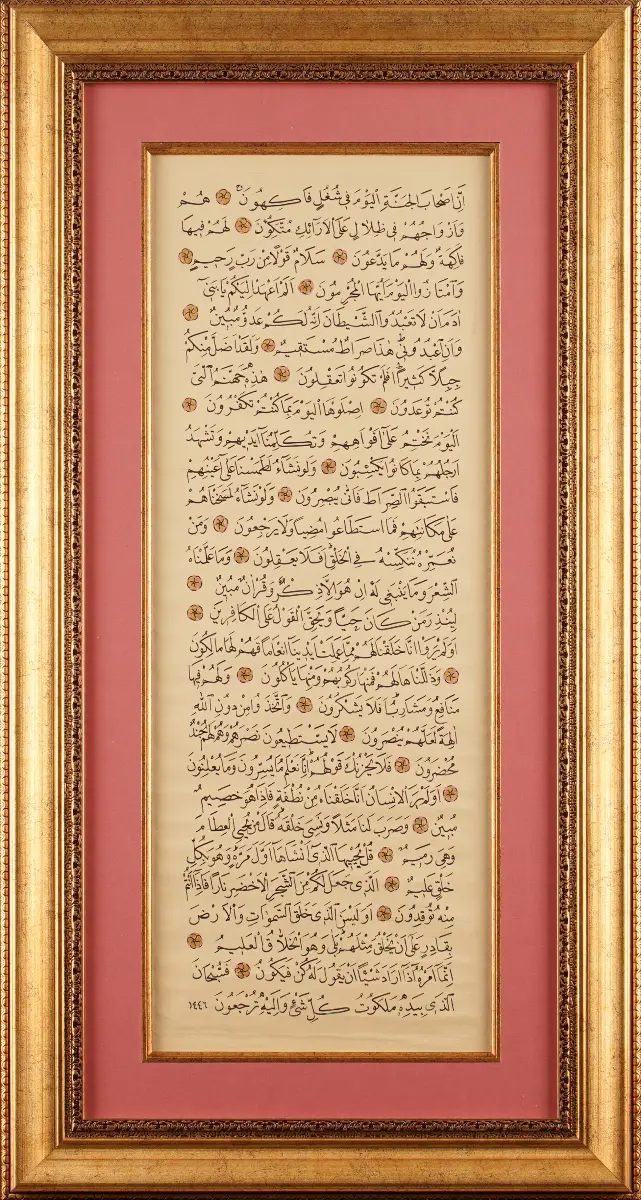 اِنَّ اَصْحَابَ الْجَنَّةِ الْيَوْمَ فٖى شُغُلٍ فَاكِهُونَ هُمْ
وَاَزْوَاجُهُمْ فٖى ظِلَالٍ عَلَى الْاَرَائِكِ مُتَّكِؤُنَ لَهُمْ فٖيهَا
فَاكِهَةٌ وَلَهُمْ مَا يَدَّعُونَ سَلَامٌ قَوْلًا مِنْ رَبٍّ رَحٖيمٍ
وَامْتَازُوا الْيَوْمَ اَيُّهَا الْمُجْرِمُونَ اَلَمْ اَعْهَدْ اِلَيْكُمْ يَا بَنٖى
اٰدَمَ اَنْ لَا تَعْبُدُوا الشَّيْطَانَ اِنَّهُ لَكُمْ عَدُوٌّ مُبٖينٌ
وَاَنِ اعْبُدُونٖى هٰذَا صِرَاطٌ مُسْتَقٖيمٌ وَلَقَدْ اَضَلَّ مِنْكُمْ
جِبِلًّا كَثٖيرًا اَفَلَمْ تَكُونُوا تَعْقِلُونَ هٰذِهٖ جَهَنَّمُ الَّتٖى
كُنْتُمْ تُوعَدُونَ اِصْلَوْهَا الْيَوْمَ بِمَا كُنْتُمْ تَكْفُرُونَ
اَلْيَوْمَ نَخْتِمُ عَلٰى اَفْوَاهِهِمْ وَتُكَلِّمُنَا اَيْدٖيهِمْ وَتَشْهَدُ
اَرْجُلُهُمْ بِمَا كَانُوا يَكْسِبُونَ وَلَوْ نَشَاءُ لَطَمَسْنَا عَلٰى اَعْيُنِهِمْ
فَاسْتَبَقُوا الصِّرَاطَ فَاَنّٰى يُبْصِرُونَ وَلَوْ نَشَاءُ لَمَسَخْنَاهُمْ
عَلٰى مَكَانَتِهِمْ فَمَا اسْتَطَاعُوا مُضِيًّا وَلَا يَرْجِعُونَ وَمَنْ
نُعَمِّرْهُ نُنَكِّسْهُ فِى الْخَلْقِ اَفَلَا يَعْقِلُونَ وَمَا عَلَّمْنَاهُ
الشِّعْرَ وَمَا يَنْبَغٖى لَهُ اِنْ هُوَ اِلَّا ذِكْرٌ وَقُرْاٰنٌ مُبٖينٌ
لِيُنْذِرَ مَنْ كَانَ حَيًّا وَيَحِقَّ الْقَوْلُ عَلَى الْكَافِرٖينَ
اَوَلَمْ يَرَوْا اَنَّا خَلَقْنَا لَهُمْ مِمَّا عَمِلَتْ اَيْدٖينَا اَنْعَامًا فَهُمْ لَهَا مَالِكُونَ
وَذَلَّلْنَاهَا لَهُمْ فَمِنْهَا رَكُوبُهُمْ وَمِنْهَا يَاْكُلُونَ وَلَهُمْ فٖيهَا
مَنَافِعُ وَمَشَارِبُ اَفَلَا يَشْكُرُونَ وَاتَّخَذُوا مِنْ دُونِ اللّٰهِ
اٰلِهَةً لَعَلَّهُمْ يُنْصَرُونَ لَا يَسْتَطٖيعُونَ نَصْرَهُمْ وَهُمْ لَهُمْ جُنْدٌ
مُحْضَرُونَ فَلَا يَحْزُنْكَ قَوْلُهُمْ اِنَّا نَعْلَمُ مَا يُسِرُّونَ وَمَا يُعْلِنُونَ
اَوَلَمْ يَرَ الْاِنْسَانُ اَنَّا خَلَقْنَاهُ مِنْ نُطْفَةٍ فَاِذَا هُوَ خَصٖيمٌ
مُبٖينٌ وَضَرَبَ لَنَا مَثَلًا وَنَسِىَ خَلْقَهُ قَالَ مَنْ يُحْيِى الْعِظَامَ
وَهِىَ رَمٖيمٌ قُلْ يُحْيٖيهَا الَّذٖى اَنْشَاَهَا اَوَّلَ مَرَّةٍ وَهُوَ بِكُلِّ
خَلْقٍ عَلٖيمٌ اَلَّذٖى جَعَلَ لَكُمْ مِنَ الشَّجَرِ الْاَخْضَرِ نَارًا فَاِذَا اَنْتُمْ
مِنْهُ تُوقِدُونَ اَوَلَيْسَ الَّذٖى خَلَقَ السَّمٰوَاتِ وَالْاَرْضَ
بِقَادِرٍ عَلٰى اَنْ يَخْلُقَ مِثْلَهُمْ بَلٰى وَهُوَ الْخَلَّاقُ الْعَلٖيمُ
اِنَّمَا اَمْرُهُ اِذَا اَرَادَ شَيْئًا اَنْ يَقُولَ لَهُ كُنْ فَيَكُونُ فَسُبْحَانَ
الَّذٖى بِيَدِهٖ مَلَكُوتُ كُلِّ شَىْءٍ وَاِلَيْهِ تُرْجَعُونَ ١٤٤٦